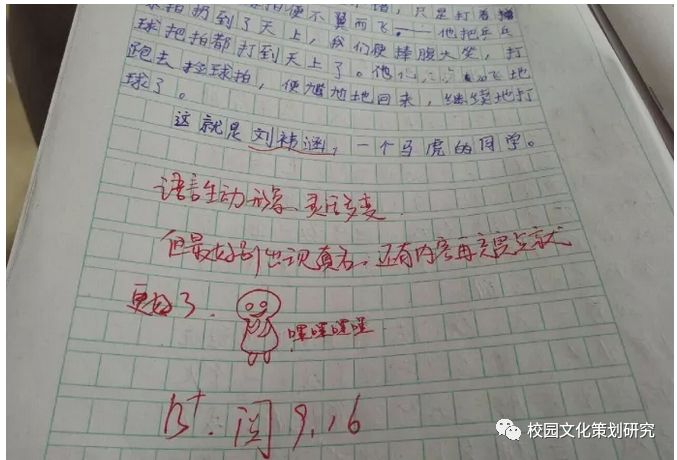 球拍扔到了天上，我们便捧腹大笑，打
球把拍都打到天上了。他
跑去捡球拍，便尴尬地回来，继续地打
球了。
这就是刘祎涵，一个马虎的同学。
语言生动形象、灵活多变
但最好别出现真名，还有内容再充实点就
更好了.
嘿嘿嘿嘿
B⁺. 阅 9.16
校园文化策划研究